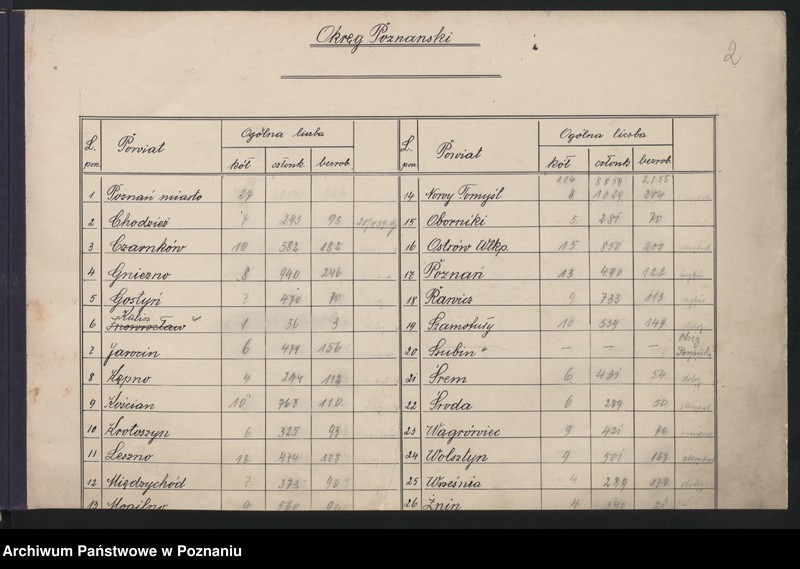 Okręg Poznanski
2
L. poz. Powiat Ogólna liczba L. poz. Powiat Ogólna liczba
kół członk. bezrob. kół członk. bezrob.
114 8859 2358
1 Poznań miasto 27
14 Nowy Tomyśl 8 1029 204
2 Chodzież 293 95
15 Oborniki 5 281 70
3 Czarnków 10 582 182
16 Ostrów Wlkp. 15 850 200
4 Gniezno 8 940 246
17 Poznań 13 490 122
5 Gostyń 7 470 70
18 Rawicz 9 733 113
Kalisz
6 Inowrocław 1 36 3
19 Szamotuły 10 539 149
7 Jarocin 6 479 156
20 Szubin — — — Okręg
8 Kępno 4 214 112
21 Śrem 6 431 54
9 Kościan 10 768 110
22 Środa 6 289 50
10 Krotoszyn 6 325 93
23 Wągrówiec 9 421 70
11 Leszno 13 474 108
24 Wolsztyn 9 501 167
12 Międzychód 7 373 90
25 Września 4 289 170
13 Mogilno 9 560
26 Żnin 4
Archiwum Państwowe w Poznaniu